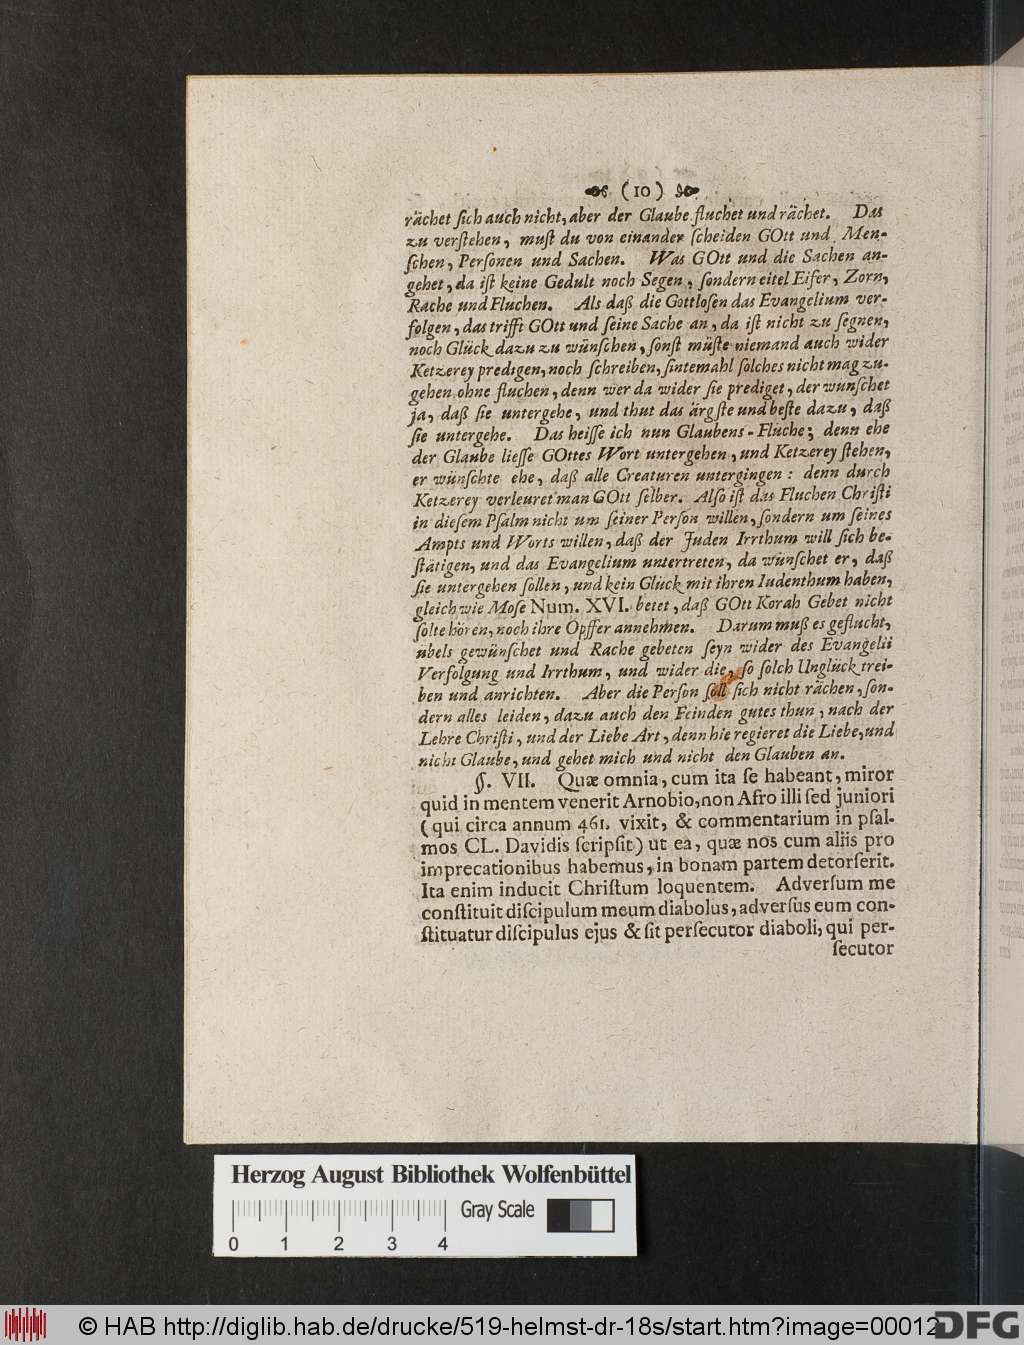 (10)
rächet ſich auch nicht, aber der Glaube fluchet und rächet. Das
zu verſtehen, muſt du von einander ſcheiden GOtt und Men-
ſchen, Perſonen und Sachen. Was GOtt und die Sachen an-
gehet, da iſt keine Gedult noch Segen, ſondern eitel Eifer, Zorn,
Rache und Fluchen. Als daß die Gottloſen das Evangelium ver-
folgen, das trifft GOtt und ſeine Sache an, da iſt nicht zu ſegnen,
noch Glück dazu zu wünſchen, ſonſt müſte niemand auch wider
Ketzerey predigen, noch ſchreiben, ſintemahl ſolches nicht mag zu-
gehen ohne fluchen, denn wer da wider ſie prediget, der wünſchet
ja, daß ſie untergehe, und thut das ärgſte und beſte dazu, daß
ſie untergehe. Das heiſſe ich nun Glaubens-Fluche; denn ehe
der Glaube lieſſe GOttes Wort untergehen, und Ketzerey ſtehen,
er wünſchte ehe, daß alle Creaturen untergingen: denn durch
Ketzerey verleuret man GOtt ſelber. Alſo iſt das Fluchen Chriſti
in dieſem Pſalm nicht um ſeiner Perſon willen, ſondern um ſeines
Ampts und Worts willen, daß der Juden Irrthum will ſich be-
ſtätigen, und das Evangelium untertreten, da wünſchet er, daß
ſie untergehen ſollen, und kein Glück mit ihren Iudenthum haben,
gleich wie Moſe Num. XVI. betet, daß GOtt Korah Gebet nicht
ſolte hören, noch ihre Opffer annehmen. Darum muß es geflucht,
übels gewünſchet und Rache gebeten ſeyn wider des Evangelii
Verfolgung und Irrthum, und wider die, ſo ſolch Unglück trei-
ben und anrichten. Aber die Perſon ſoll ſich nicht rächen, ſon-
dern alles leiden, dazu auch den Feinden gutes thun, nach der
Lehre Chriſti, und der Liebe Art, denn hie regieret die Liebe, und
nicht Glaube, und gehet mich und nicht den Glauben an.
§. VII. Quæ omnia, cum ita ſe habeant, miror
quid in mentem venerit Arnobio, non Afro illi ſed juniori
(qui circa annum 461. vixit, & commentarium in pſal-
mos CL. Davidis ſcripſit) ut ea, quæ nos cum aliis pro
imprecationibus habemus, in bonam partem detorſerit.
Ita enim inducit Chriſtum loquentem. Adverſum me
conſtituit diſcipulum meum diabolus, adverſus eum con-
ſtituatur diſcipulus ejus & ſit perſecutor diaboli, qui per-
ſecutor
Herzog August Bibliothek Wolfenbüttel
Gray Scale
0 1 2 3 4
© HAB http://diglib.hab.de/drucke/519-helmst-dr-18s/start.htm?image=00012
DFG